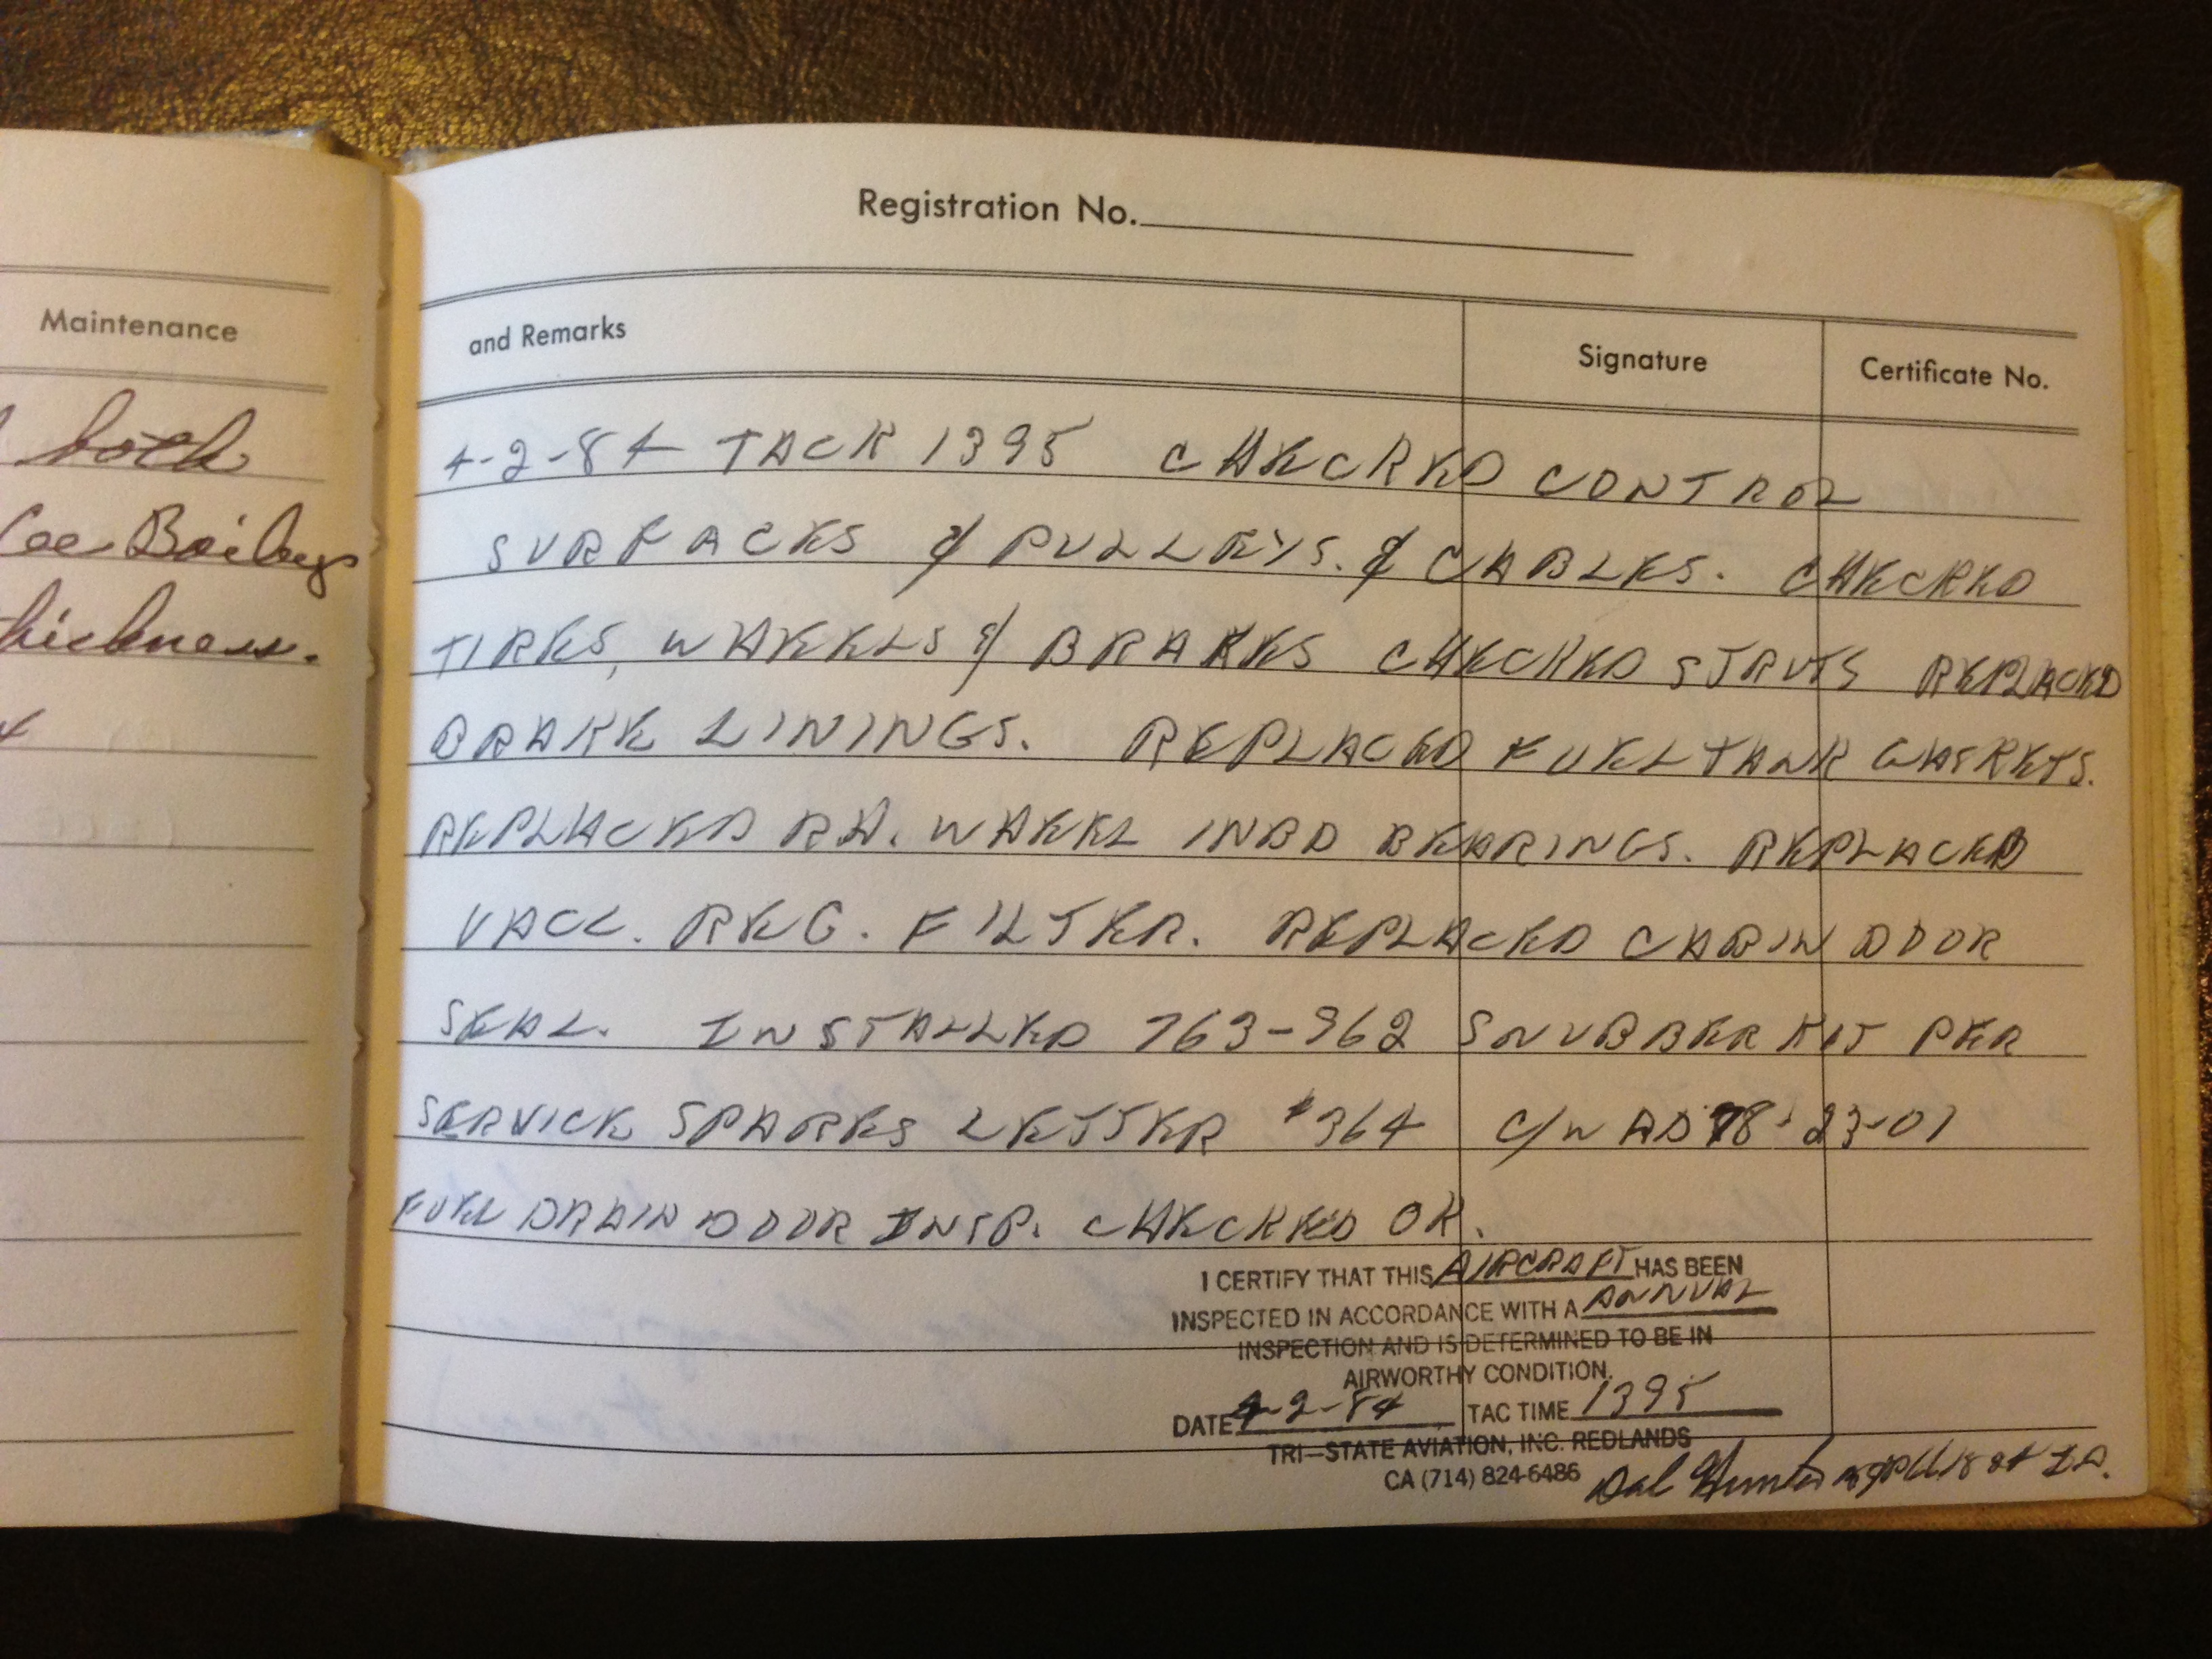 Registration No.
Maintenance
and Remarks
Signature
Certificate No.
both
Bailey
thickness.
4-2-84 TACK 1395 CHECKED CONTROL
SURFACES & PULLEYS. & CABLES. CHECKED
TIRES, WHEELS & BRAKES CHECKED STRUTS REPLACED
BRAKE LININGS. REPLACED FUEL TANK GASKETS.
REPLACED RH. WHEEL INBD BEARINGS. REPLACED
VACC. REG. FILTER. REPLACED CABIN DOOR
SEAL. INSTALLED 763-962 SNUBBER KIT PER
SERVICE SPARES LETTER #364 C/W AD 78-23-01
FUEL DRAIN DOOR INSP. CHECKED OK.
I CERTIFY THAT THIS AIRCRAFT HAS BEEN
INSPECTED IN ACCORDANCE WITH A ANNUAL
INSPECTION AND IS DETERMINED TO BE IN
AIRWORTHY CONDITION.
DATE 4-2-84 TAC TIME 1395
TRI-STATE AVIATION, INC. REDLANDS
CA (714) 824-6486 Dal Hunter IA.